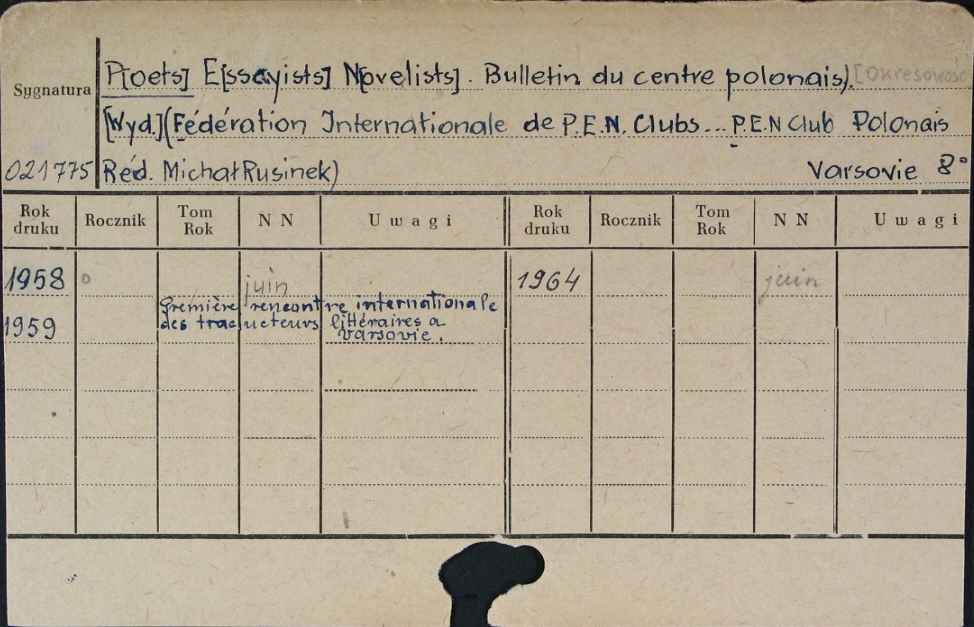 Sygnatura
P[oets] E[ssayists] N[ovelists]. Bulletin du centre polonais). [Okresowość
[Wyd.](Fédération Internationale de P.E.N. Clubs... P.E.N Club Polonais
021775 Réd. Michał Rusinek) Varsovie 8°
Rok druku Rocznik Tom Rok NN Uwagi Rok druku Rocznik Tom Rok NN Uwagi
1958 juin 1964 juin
première rencontre internationale
1959 des traducteurs littéraires a
Varsovie.